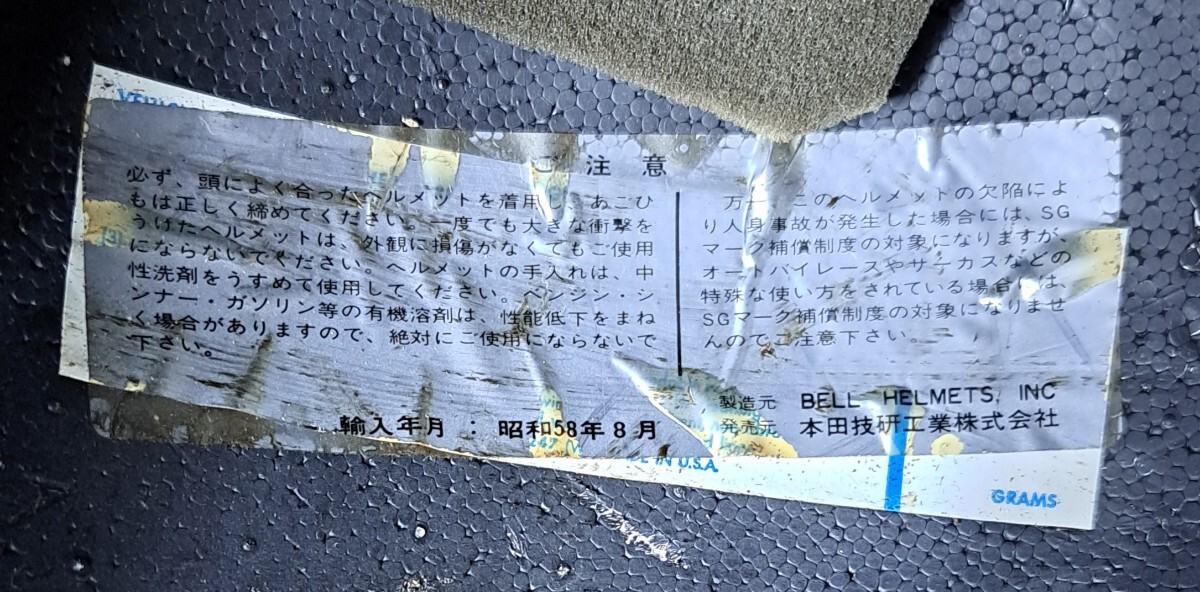 ご注意
必ず、頭によく合ったヘルメットを着用し、あごひ
もは正しく締めてください。一度でも大きな衝撃を
うけたヘルメットは、外観に損傷がなくてもご使用
にならないでください。ヘルメットの手入れは、中
性洗剤をうすめて使用してください。ベンジン・シ
ンナー・ガソリン等の有機溶剤は、性能低下をまね
く場合がありますので、絶対にご使用にならないで
下さい。
万一、このヘルメットの欠陥によ
り人身事故が発生した場合には、SG
マーク補償制度の対象になりますが、
オートバイレースやサーカスなどの
特殊な使い方をされている場合には、
SGマーク補償制度の対象になりませ
んのでご注意下さい。
製造元 BELL HELMETS, INC
発売元 本田技研工業株式会社
輸入年月 : 昭和58年8月
IN U.S.A.
GRAMS